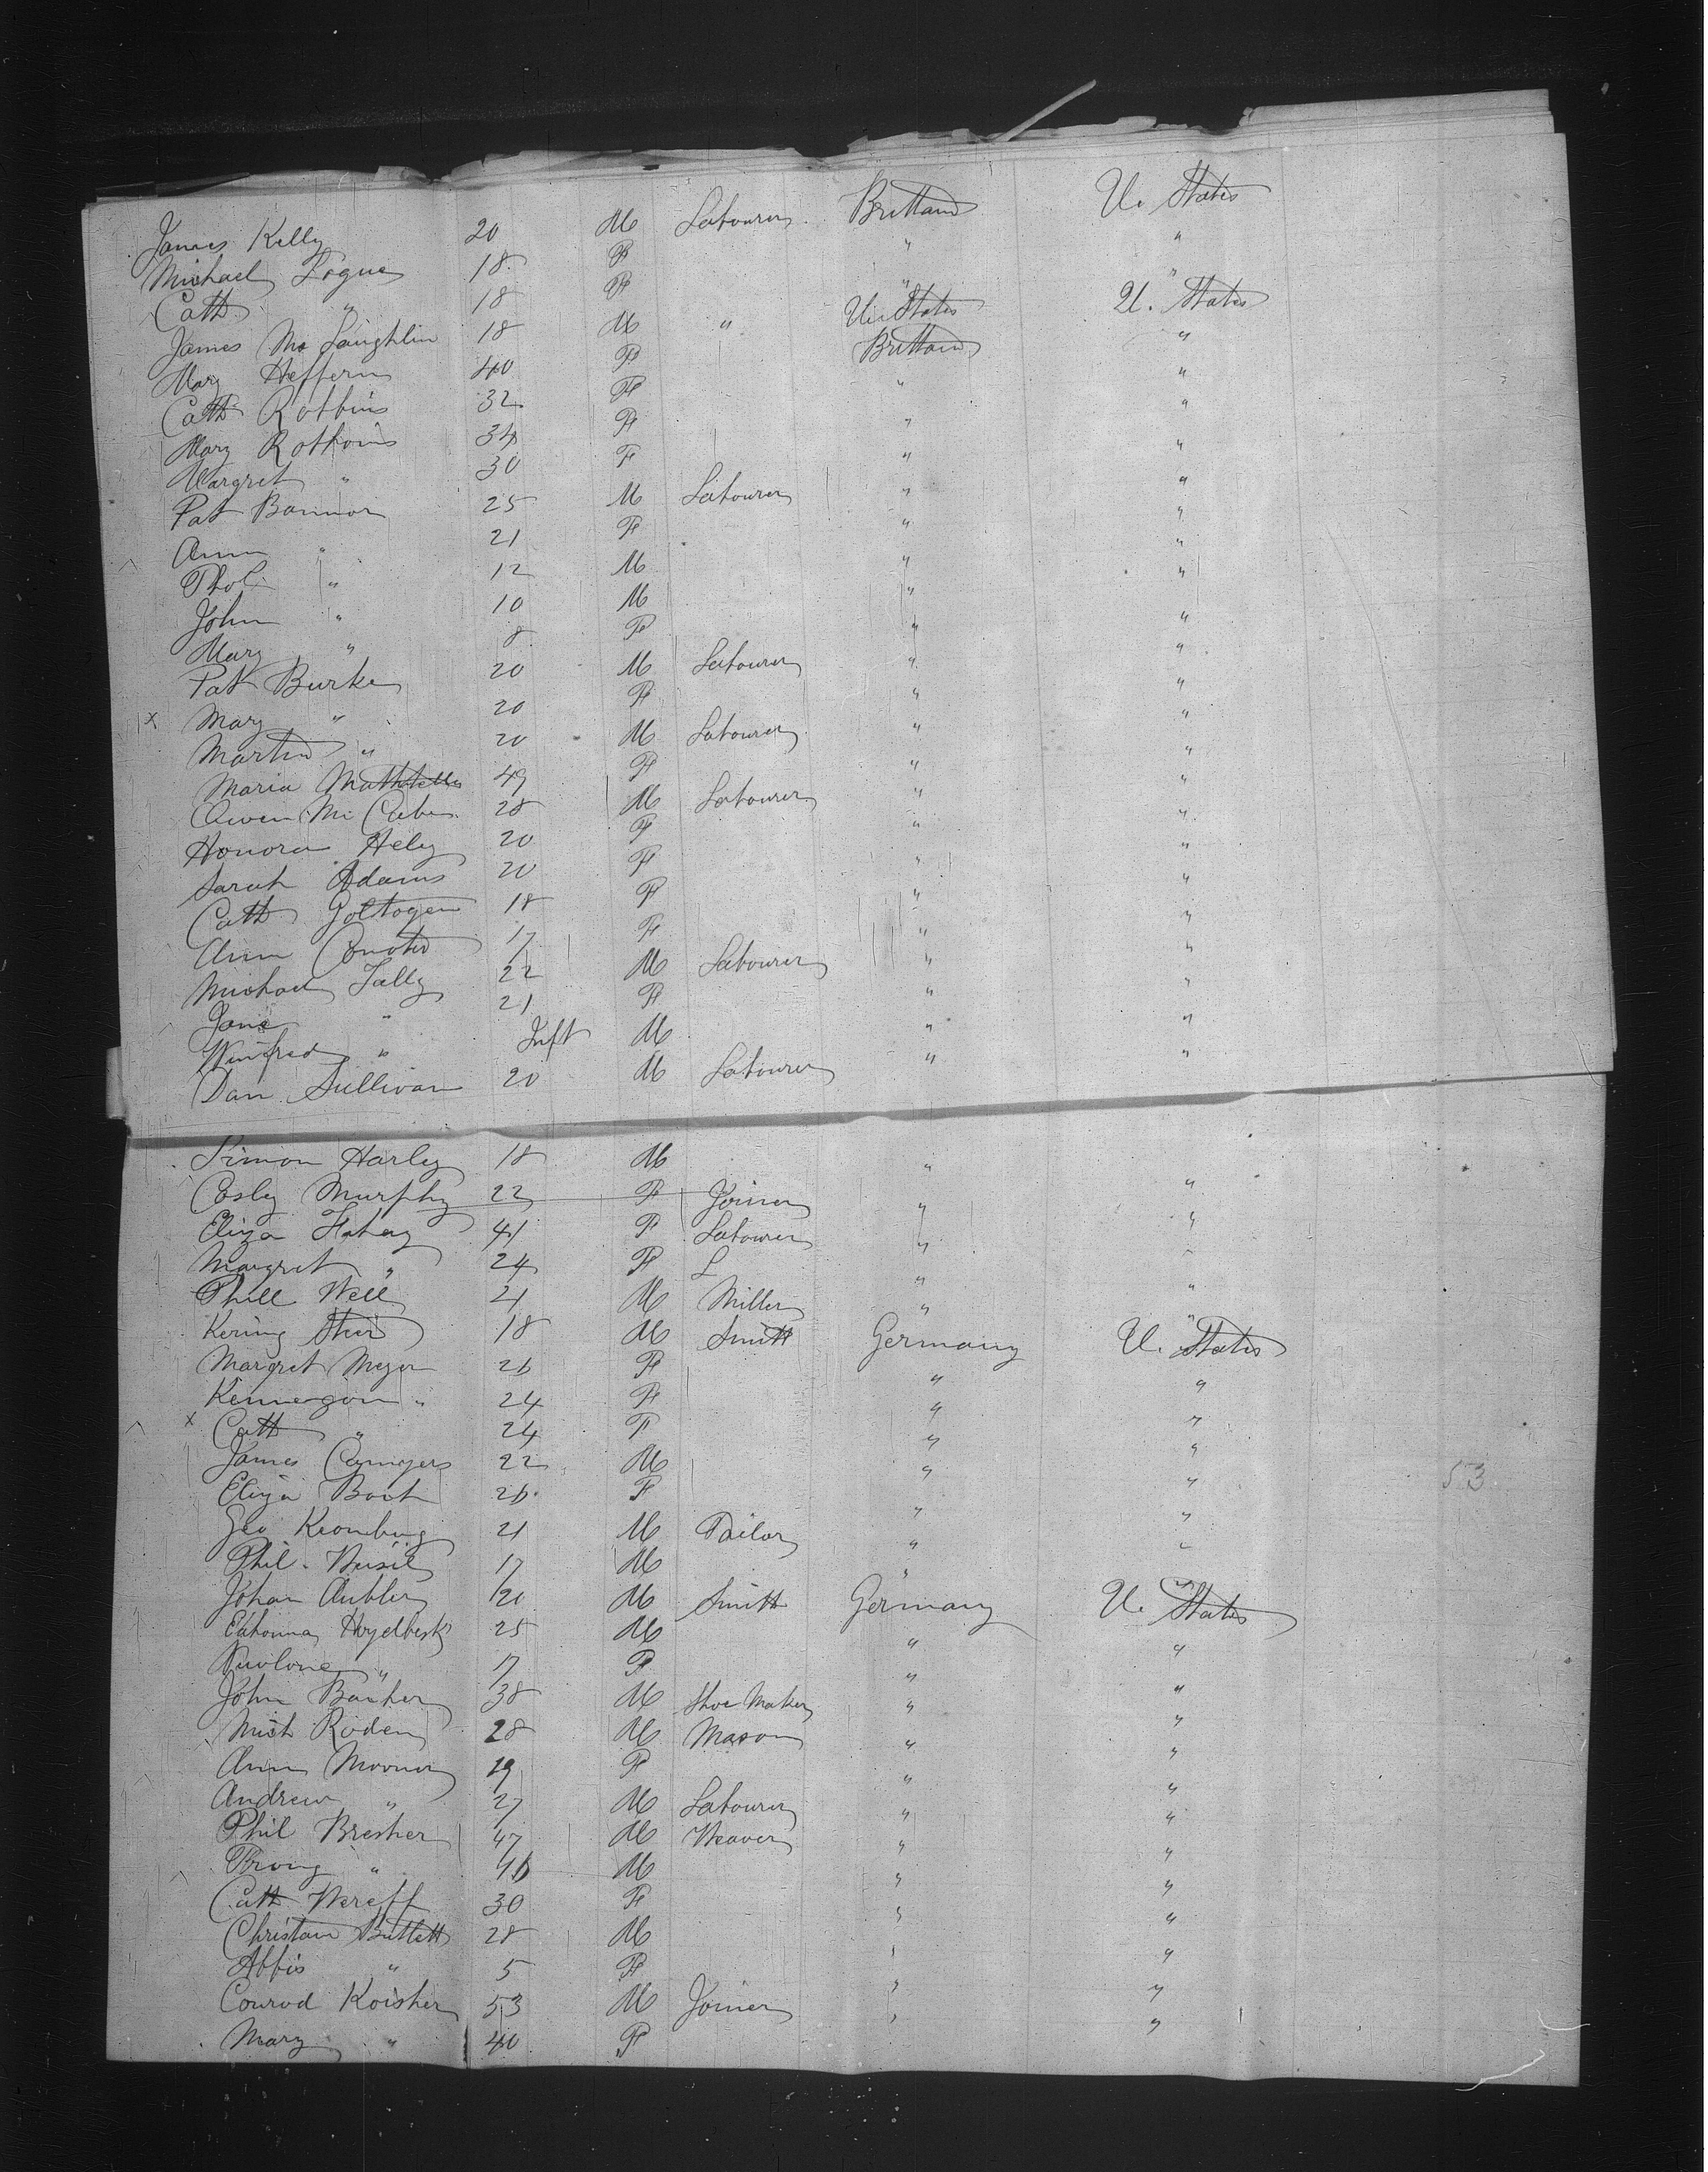 James Kelly 20 M Labourer Brittain U. States
Michael Logue 18 F " "
Cath " 18 F " "
James Mc Laughlin 18 M " U. States U. States
Mary Heffern 40 F Brittain "
Cath Robbins 32 F " "
Mary Robbins 34 F " "
Margret " 30 F " "
Pat Bannon 25 M Labourer " "
Ann " 21 F " "
Thos " 12 M " "
John " 10 M " "
Mary " 8 F " "
Pat Burke 20 M Labourer " "
x Mary " 20 F " "
Martin " 20 M Labourer " "
Maria 49 F " "
Owen Mc Cabe 28 M Labourer " "
Honora Hely 20 F " "
Sarah Adams 20 F " "
Cath 18 F " "
Ann 17 F " "
Michael Tally 22 M Labourer " "
Jane " 21 F " "
Winifred " Inft M " "
Dan Sullivan 20 M Labourer " "
Simon Harley 18 M " "
Cosly Murphy 22 F Joiner " "
Eliza Fahay 41 F Labourer " "
Margret " 24 F L " "
Phill Well 21 M Miller " "
18 M Smith Germany U. States
Margret Meyer 26 F " "
" 24 F " "
x Cath " 24 F " "
James 22 M " "
Eliza Boch 26 F " "
Geo Kromburg 21 M Tailor " "
Phil. 17 M " "
Johan Aubler 20 M Smith Germany U. States
Heydbeck 25 M " "
" 17 F " "
John Bauker 38 M Shoe Maker " "
Mich Roden 28 M Mason " "
Ann Moonon 19 F " "
Andrew " 27 M Labourer " "
Phil Bresher 47 M Weaver " "
" 46 M " "
Cath Wereff 30 F " "
Christian Butlett 28 M " "
Abbis " 5 F " "
Conrod Koisher 53 M Joiner " "
Mary " 40 F
53